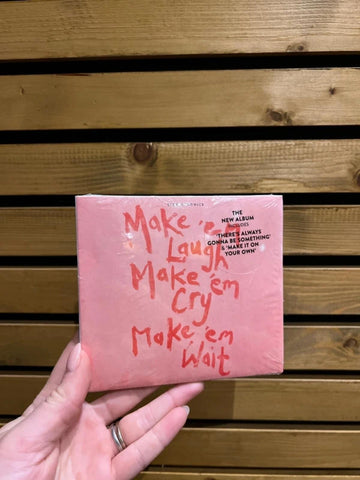 Make 'em
Laugh
Make 'em
Cry
Make 'em
Wait
THE
NEW ALBUM
INCLUDES
'THERE'S ALWAYS
GONNA BE SOMETHING'
& 'MAKE IT ON
YOUR OWN'